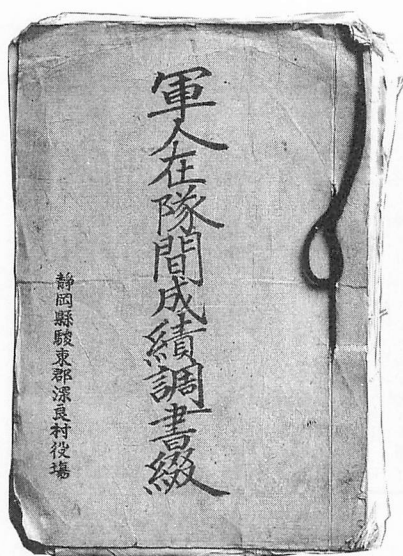 軍人在隊間成績調書綴
静岡縣駿東郡深良村役場